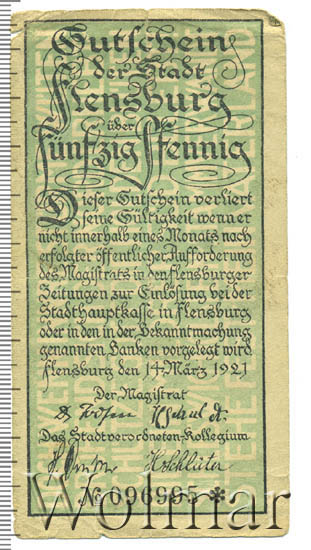 Gutschein
der Stadt
Flensburg
über
fünfzig Pfennig
Dieser Gutschein verliert
seine Gültigkeit wenn er
nicht innerhalb eines Monats nach
erfolgter öffentlicher Aufforderung
des Magistrats in den flensburger
Zeitungen zur Einlösung bei der
Stadthauptkasse in Flensburg
oder in den in der Bekanntmachung
genannten Banken vorgelegt wird
Flensburg den 14. März 1921
Der Magistrat
Das Stadtverordneten-Kollegium
H. Schlüter
№ 696995 *
Wolmar